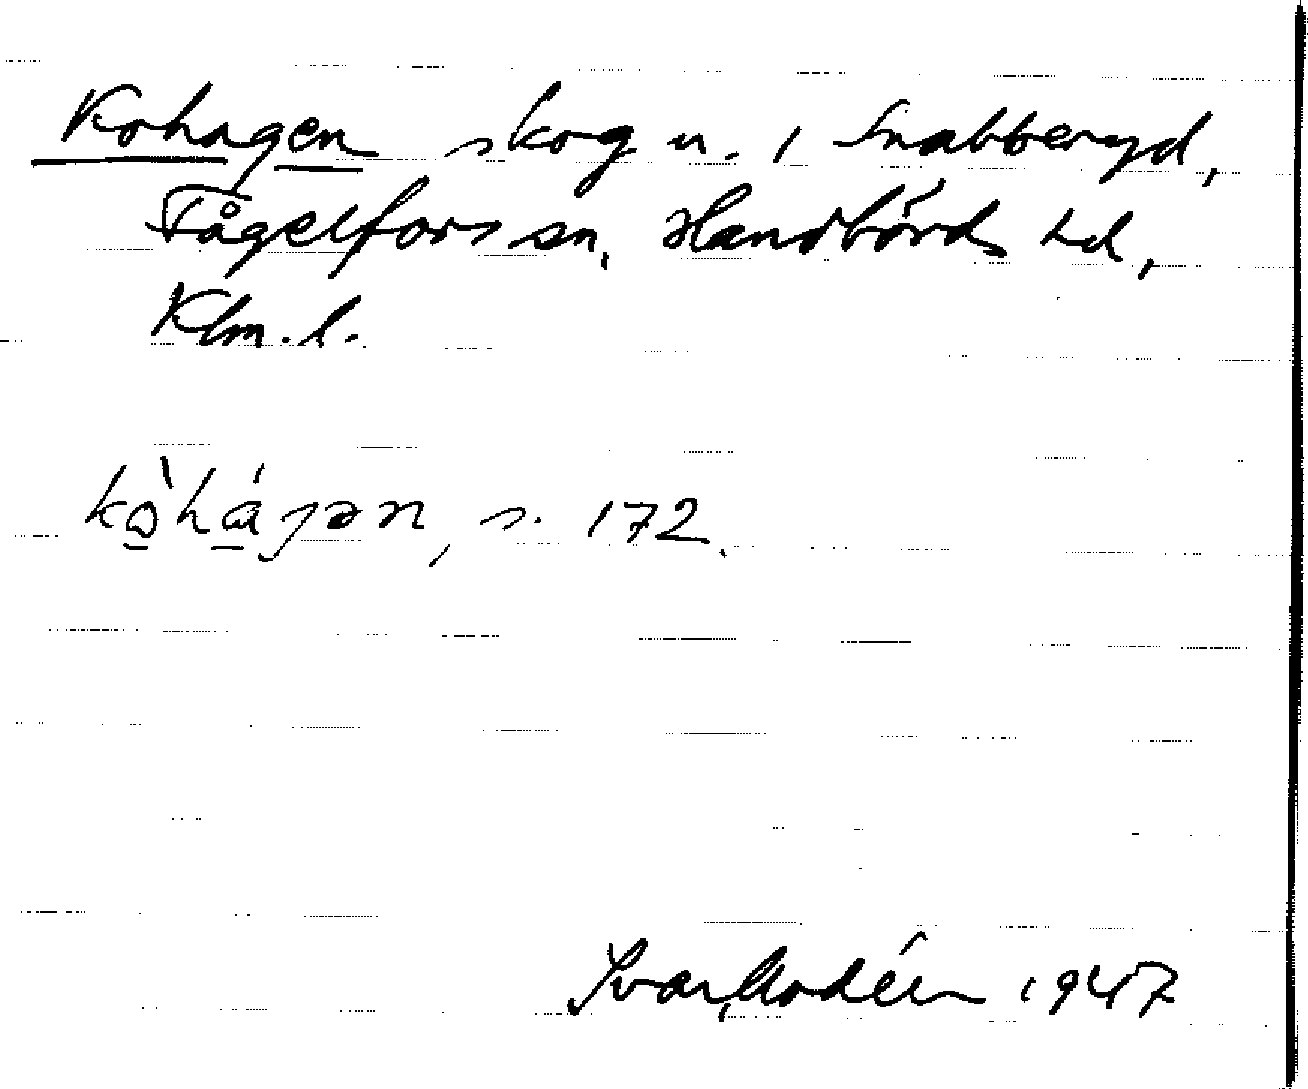 Kohagen skog u. i Snabberyd,
Fågelfors sn, Handbörds hd,
Klm. l.
kò̱há̱jən, s. 172.
Ivar Modéer 1947